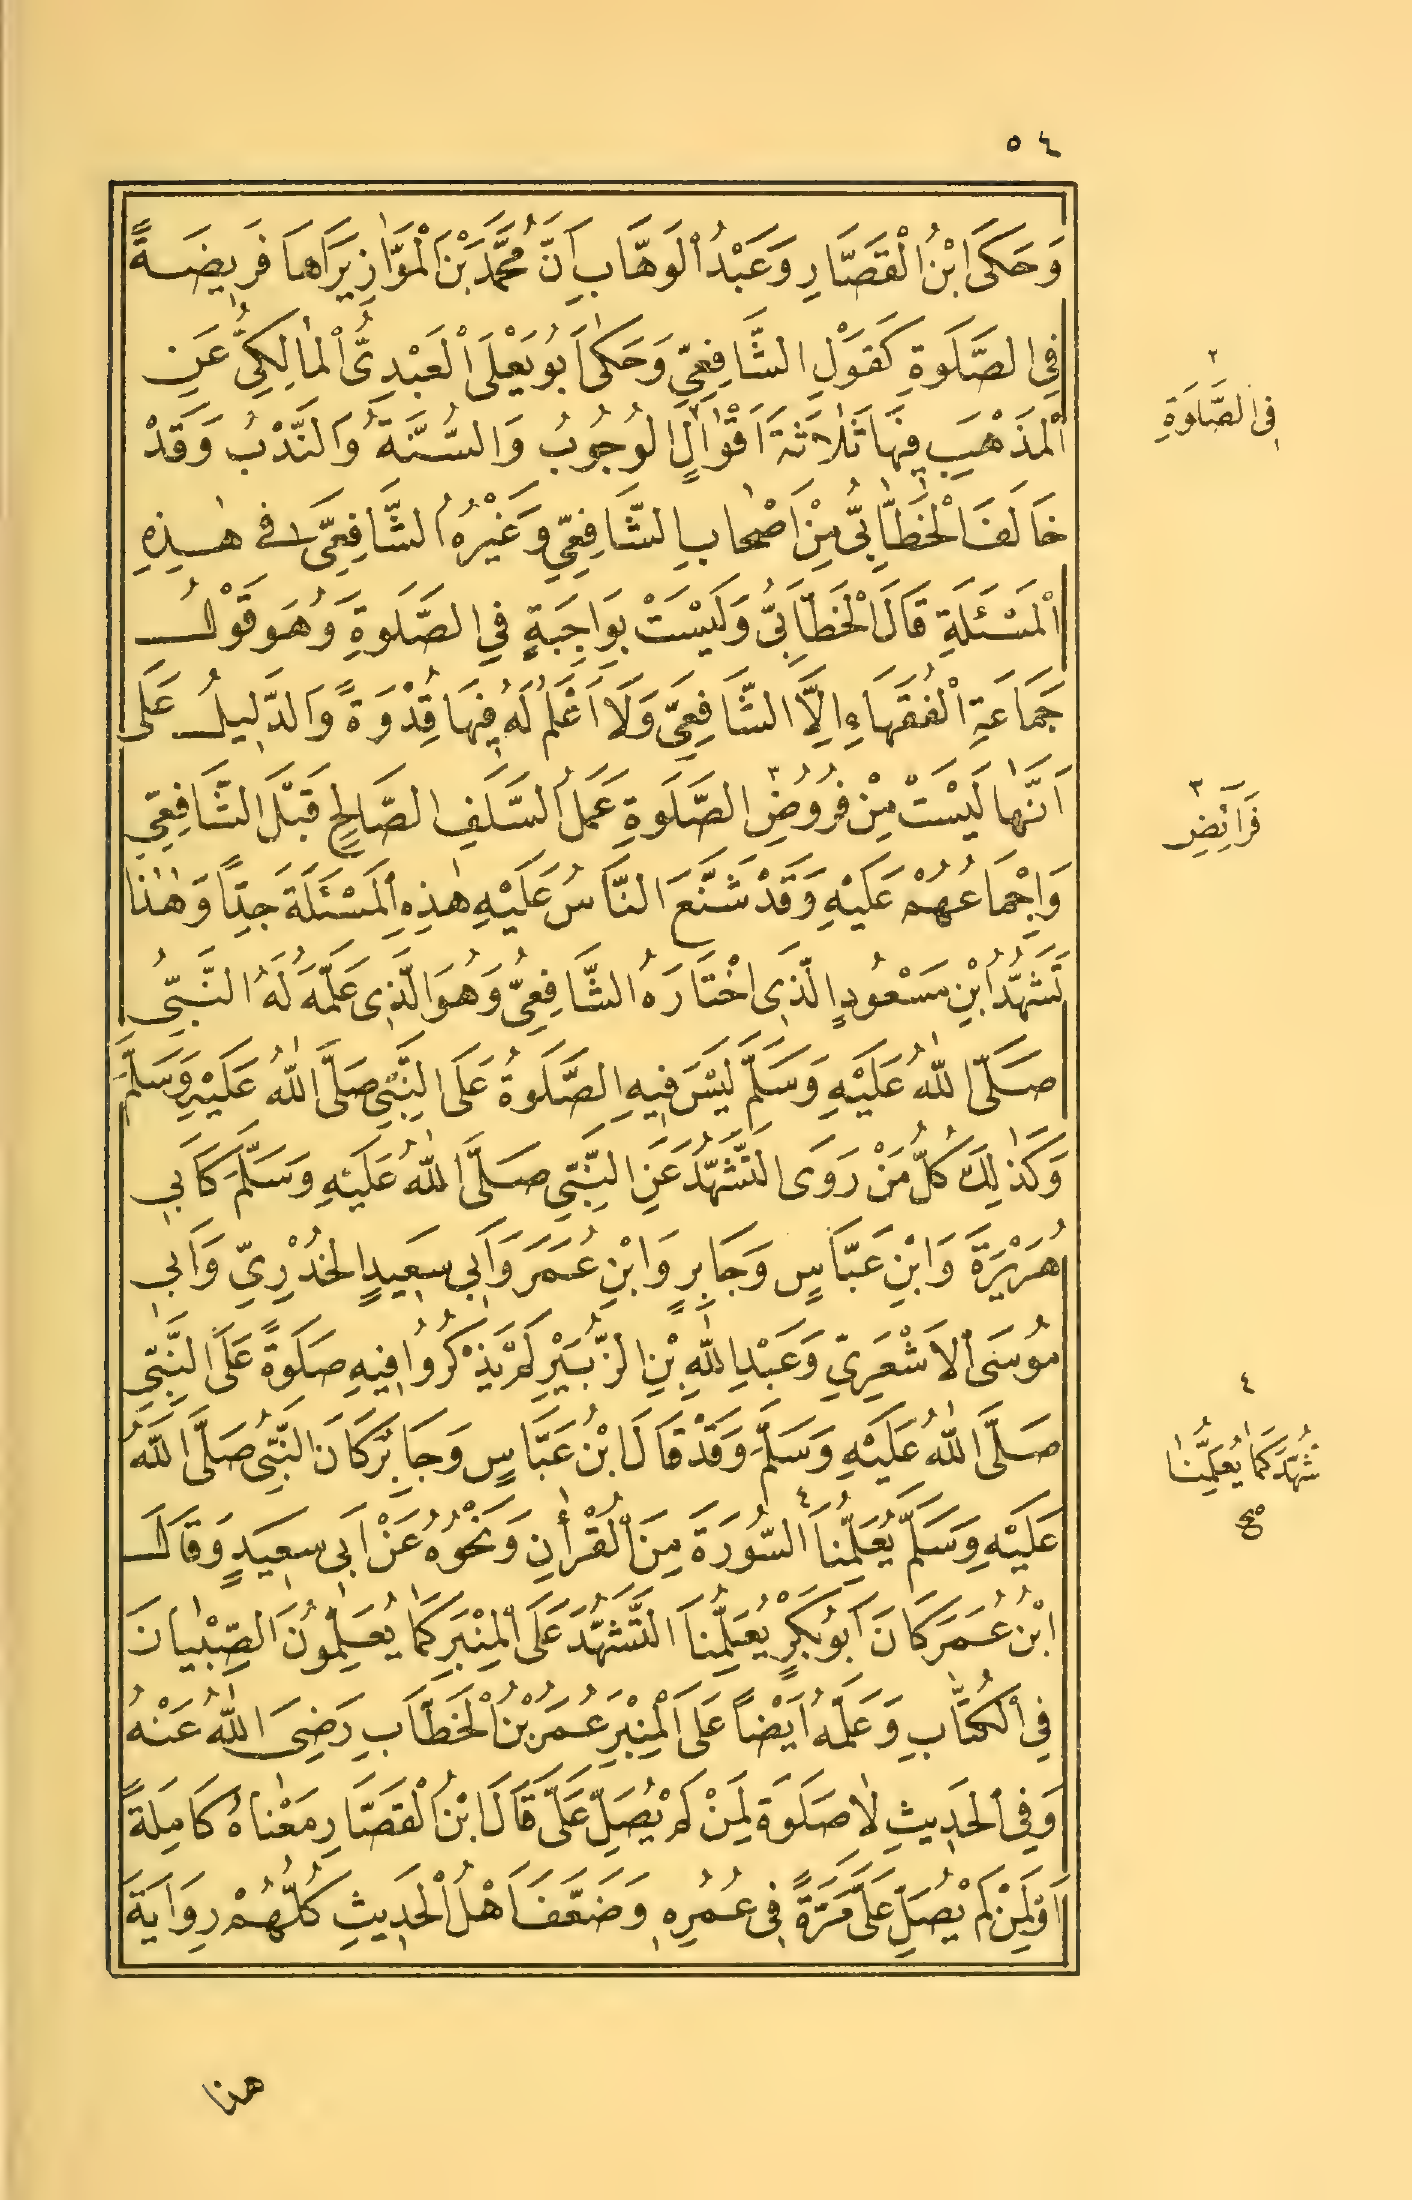 ٥٤
وَحَكَى ابْنُ الْقَصَّارِ وَعَبْدُ الْوَهَّابِ اَنَّ مُحَمَّدَ بْنَ الْمَوَّازِ يَرَاهَا فَرِيضَةً
فِي الصَّلَوةِ كَقَوْلِ الشَّافِعِيِّ وَحَكٰى اَبُو يَعْلَى الْعَبْدِىُّ الْمَالِكِىُّ عَنِ
الْمَذْهَبِ فِيهَا ثَلَاثَةَ اَقْوَالٍ الْوُجُوبُ وَالسُّنَّةُ وَالنَّدْبُ وَقَدْ
خَالَفَ الْخَطَّابِىُّ مِنْ اَصْحَابِ الشَّافِعِيِّ وَغَيْرُهُ الشَّافِعِيَّ فِى هٰذِهِ
الْمَسْئَلَةِ قَالَ الْخَطَّابِىُّ وَلَيْسَتْ بِوَاجِبَةٍ فِي الصَّلَوةِ وَهُوَ قَوْلُ
جَمَاعَةِ الْفُقَهَاءِ اِلَّا الشَّافِعِيَّ وَلَا اَعْلَمُ لَهُ فِيهَا قُدْوَةً وَالدَّلِيلُ عَلَى
اَنَّهَا لَيْسَتْ مِنْ فُرُوضِ ٣ الصَّلَوةِ عَمَلُ السَّلَفِ الصَّالِحِ قَبْلَ الشَّافِعِيِّ
وَاِجْمَاعُهُمْ عَلَيْهِ وَقَدْ شَنَّعَ النَّاسُ عَلَيْهِ هٰذِهِ الْمَسْئَلَةَ جِدًّا وَهٰذَا
تَشَهُّدُ ابْنِ مَسْعُودٍ الَّذِى اخْتَارَهُ الشَّافِعِيُّ وَهُوَ الَّذِى عَلَّمَهُ لَهُ النَّبِىُّ
صَلَّى اللّٰهُ عَلَيْهِ وَسَلَّمَ لَيْسَ فِيهِ الصَّلَوةُ عَلَى النَّبِىِّ صَلَّى اللّٰهُ عَلَيْهِ وَسَلَّمَ
وَكَذٰلِكَ كُلُّ مَنْ رَوَى التَّشَهُّدَ عَنِ النَّبِىِّ صَلَّى اللّٰهُ عَلَيْهِ وَسَلَّمَ كَاَبِى
هُرَيْرَةَ وَابْنِ عَبَّاسٍ وَجَابِرٍ وَابْنِ عُمَرَ وَاَبِى سَعِيدٍ الْخُدْرِيِّ وَاَبِى
مُوسَى الْاَشْعَرِيِّ وَعَبْدِ اللّٰهِ بْنِ الزُّبَيْرِ لَمْ يَذْكُرُوا فِيهِ صَلَوةً عَلَى النَّبِىِّ
صَلَّى اللّٰهُ عَلَيْهِ وَسَلَّمَ وَقَدْ قَالَ ابْنُ عَبَّاسٍ وَجَابِرٌ كَانَ النَّبِىُّ صَلَّى اللّٰهُ
عَلَيْهِ وَسَلَّمَ يُعَلِّمُنَا ٤ السُّورَةَ مِنَ الْقُرْاٰنِ وَنَحْوُهُ عَنْ اَبِى سَعِيدٍ وَقَالَ
ابْنُ عُمَرَ كَانَ اَبُو بَكْرٍ يُعَلِّمُنَا التَّشَهُّدَ عَلَى الْمِنْبَرِ كَمَا يُعَلِّمُونَ الصِّبْيَانَ
فِى الْكُتَّابِ وَعَلَّمَهُ اَيْضًا عَلَى الْمِنْبَرِ عُمَرُ بْنُ الْخَطَّابِ رَضِىَ اللّٰهُ عَنْهُ
وَفِى الْحَدِيثِ لَا صَلَوةَ لِمَنْ لَمْ يُصَلِّ عَلَىَّ قَالَ ابْنُ الْقَصَّارِ مَعْنَاهُ كَامِلَةً
اَوْ لِمَنْ لَمْ يُصَلِّ عَلَىَّ مَرَّةً فِى عُمُرِهِ وَضَعَّفَ اَهْلُ الْحَدِيثِ كُلُّهُمْ رِوَايَةَ
٢
فِى الصَّلَوةِ
٣
فَرَائِضِ
٤
تَشَهُّدَ كَمَا يُعَلِّمُنَا
صح
هذا